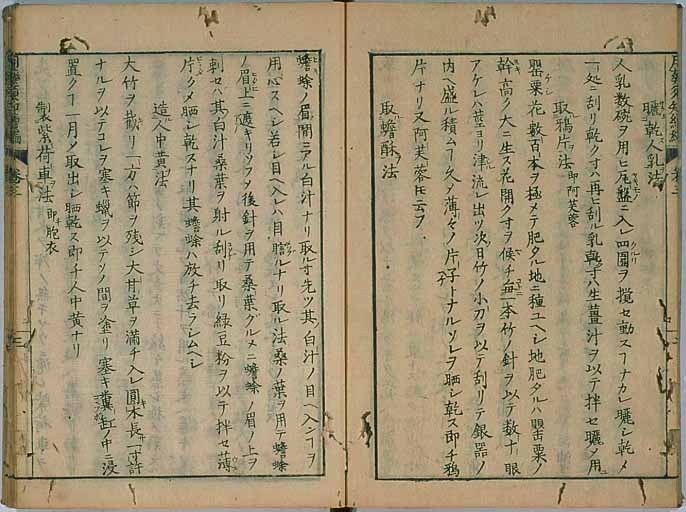 曬乾人乳法
人乳数碗ヲ用ヒ瓦盤ニ入レ四圍ヲ攪セ動スヿナカレ曬シ乾メ
一処ニ刮リ乾クオハ再ヒ刮ル乳乾オハ生薑汁ヲ以テ拌セ曬メ用
取鴉片法 即阿芙蓉
罌粟花数百本ヲ極メテ肥タル地ニ種ユヘシ地肥タルハ罌粟ノ
幹高ク大ニ生ス花開クオヲ候チ毎一本竹ノ針ヲ以テ数十眼
アケレハ莖ヨリ津流レ出ツ次日竹ノ小刀ヲ以テ刮リテ銀器ノ
内ヘ盛ル積ムヿ久メ薄キノ片子トナルソレヲ晒シ乾ス即チ鴉
片ナリ又阿芙蓉𪜈云フ
取蟾酥法
蟾蜍ノ眉間ニアル白汁ナリ取ルオ先ツ其ノ白汁ノ目ヘ入シヿヲ
用心スヘシ若シ目ヘ入レハ目瞎ルナリ取ル法桑ノ葉ヲ用テ蟾蜍
ノ眉上ニ遮キリソフタ後針ヲ用テ桑葉グルメニ蟾蜍ノ眉ノ上ヲ
刺セハ其白汁桑葉ヲ射ル刮リ取リ緑豆粉ヲ以テ拌セ薄
片クメ晒シ乾スナリ其蟾蜍ハ放チ去ラシムヘシ
造人中黄法
大竹ヲ截リ一方ハ節ヲ残シ大甘草ヲ満チ入レ圓木長一寸許
ナルヲ以テコレヲ塞キ蠟ヲ以テソノ間ヲ塗リ塞キ糞缸ノ中ニ浸
置クヿ一月メ取出シ晒乾ス即チ人中黄ナリ
製紫荷車法 即胞衣